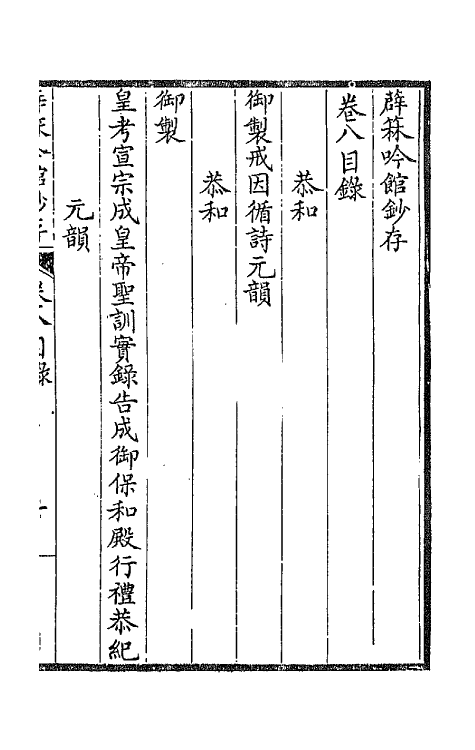 薜箖吟館鈔存
卷八目錄
恭和
御製戒因循詩元韻
恭和
御製
皇考宣宗成皇帝聖訓實錄告成御保和殿行禮恭紀
元韻